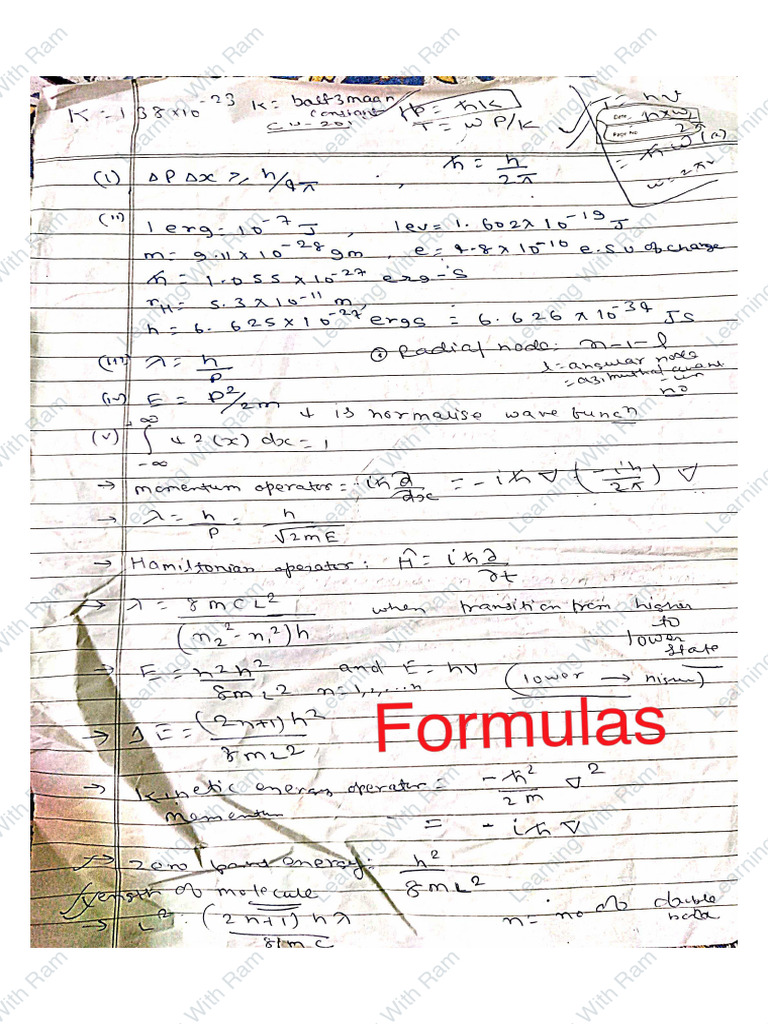 K = 1.38×10⁻²³ K = baltzmaan constant
P = ħk
T = ω P/K
(i) ΔP Δx ≥ h/4π , ħ = h/2π
(ii) 1 erg = 10⁻⁷ J , 1ev = 1.602×10⁻¹⁹ J
m = 9.11×10⁻²⁸ gm , e = 4.8×10⁻¹⁰ e.s.u of charge
ħ = 1.055×10⁻²⁷ erg-s
rH = 5.3×10⁻¹¹ m
h = 6.625×10⁻²⁷ ergs = 6.626×10⁻³⁴ Js
(iii) λ = h/P
Radial node: n-1-l
l = angular node
= azimuthal quant
-um
no
(iv) E = P²/2m
ψ is normalise wave funcn
(v) ∫ -∞ ∞ ψ2(x) dx = 1
→ momentum operator = iħ∂/∂x = -iħ∇ (-ih/2π) ∇
→ λ = h/P = h/√2mE
→ Hamiltonian operator: Ĥ = iħ∂/∂t
→ λ = 8mcL²/(n₂²-n₁²)h when transition from higher
to
lower
state
→ E = n²h²/8mL² and E = hν
n=1,2,...n (lower → higher)
→ ΔE = (2n+1)h²/8mL²
Formulas
→ Kinetic energy operator = -ħ²/2m ∇²
momentum = -iħ∇
→ Zero point energy: h²/8mL²
length of molecule
→ L² = (2n+1)hλ/8mc n = no of double
bond
Learning With Ram